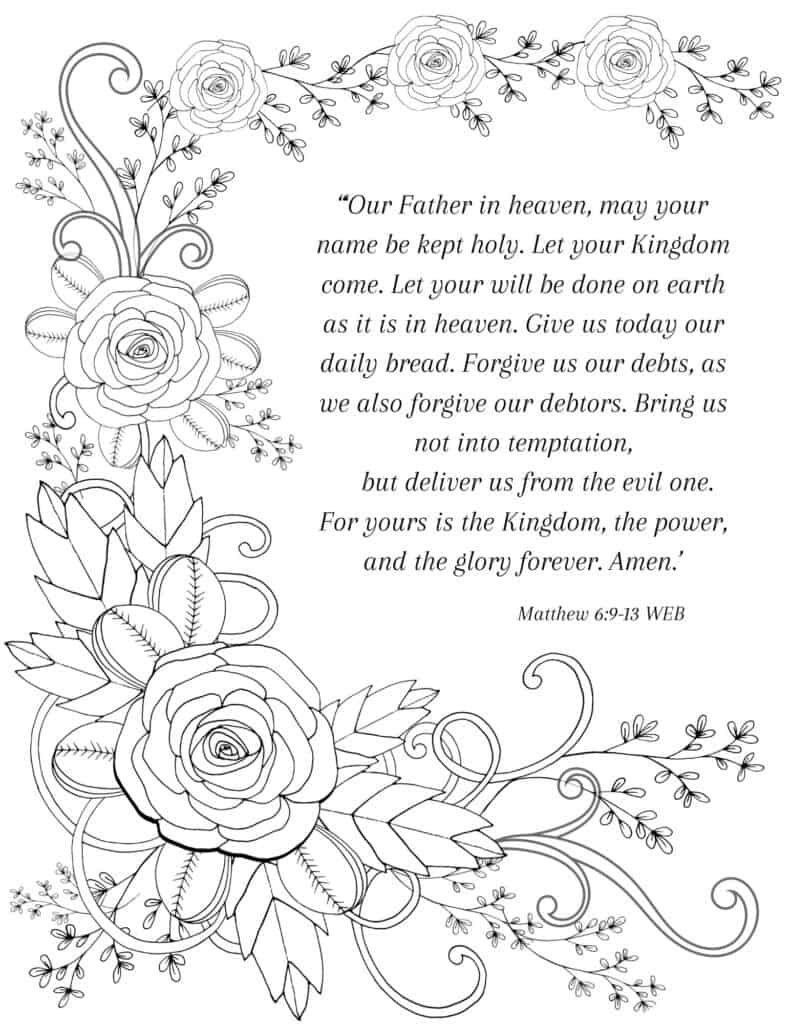 “‘Our Father in heaven, may your
name be kept holy. Let your Kingdom
come. Let your will be done on earth
as it is in heaven. Give us today our
daily bread. Forgive us our debts, as
we also forgive our debtors. Bring us
not into temptation,
but deliver us from the evil one.
For yours is the Kingdom, the power,
and the glory forever. Amen.’
Matthew 6:9-13 WEB